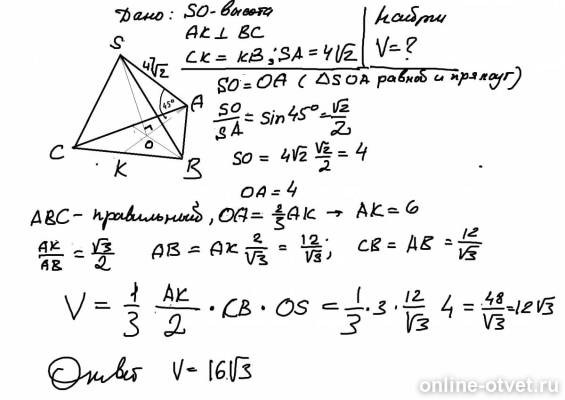 Дано: SO-высота
AK ⊥ BC
CK = KB; SA = 4√2
Найти
V=?
S
4√2
45°
A
O
C
K
B
SO = OA (△SOA равноб и прямоуг)
SO/SA = sin 45° = √2/2
SO = 4√2 √2/2 = 4
OA = 4
ABC - правильный, OA = 2/3 AK → AK = 6
AK/AB = √3/2 AB = AK 2/√3 = 12/√3; CB = AB = 12/√3
V = 1/3 AK/2 · CB · OS = 1/3 · 3 · 12/√3 4 = 48/√3 = 12√3
Ответ V = 16√3
online-otvet.ru